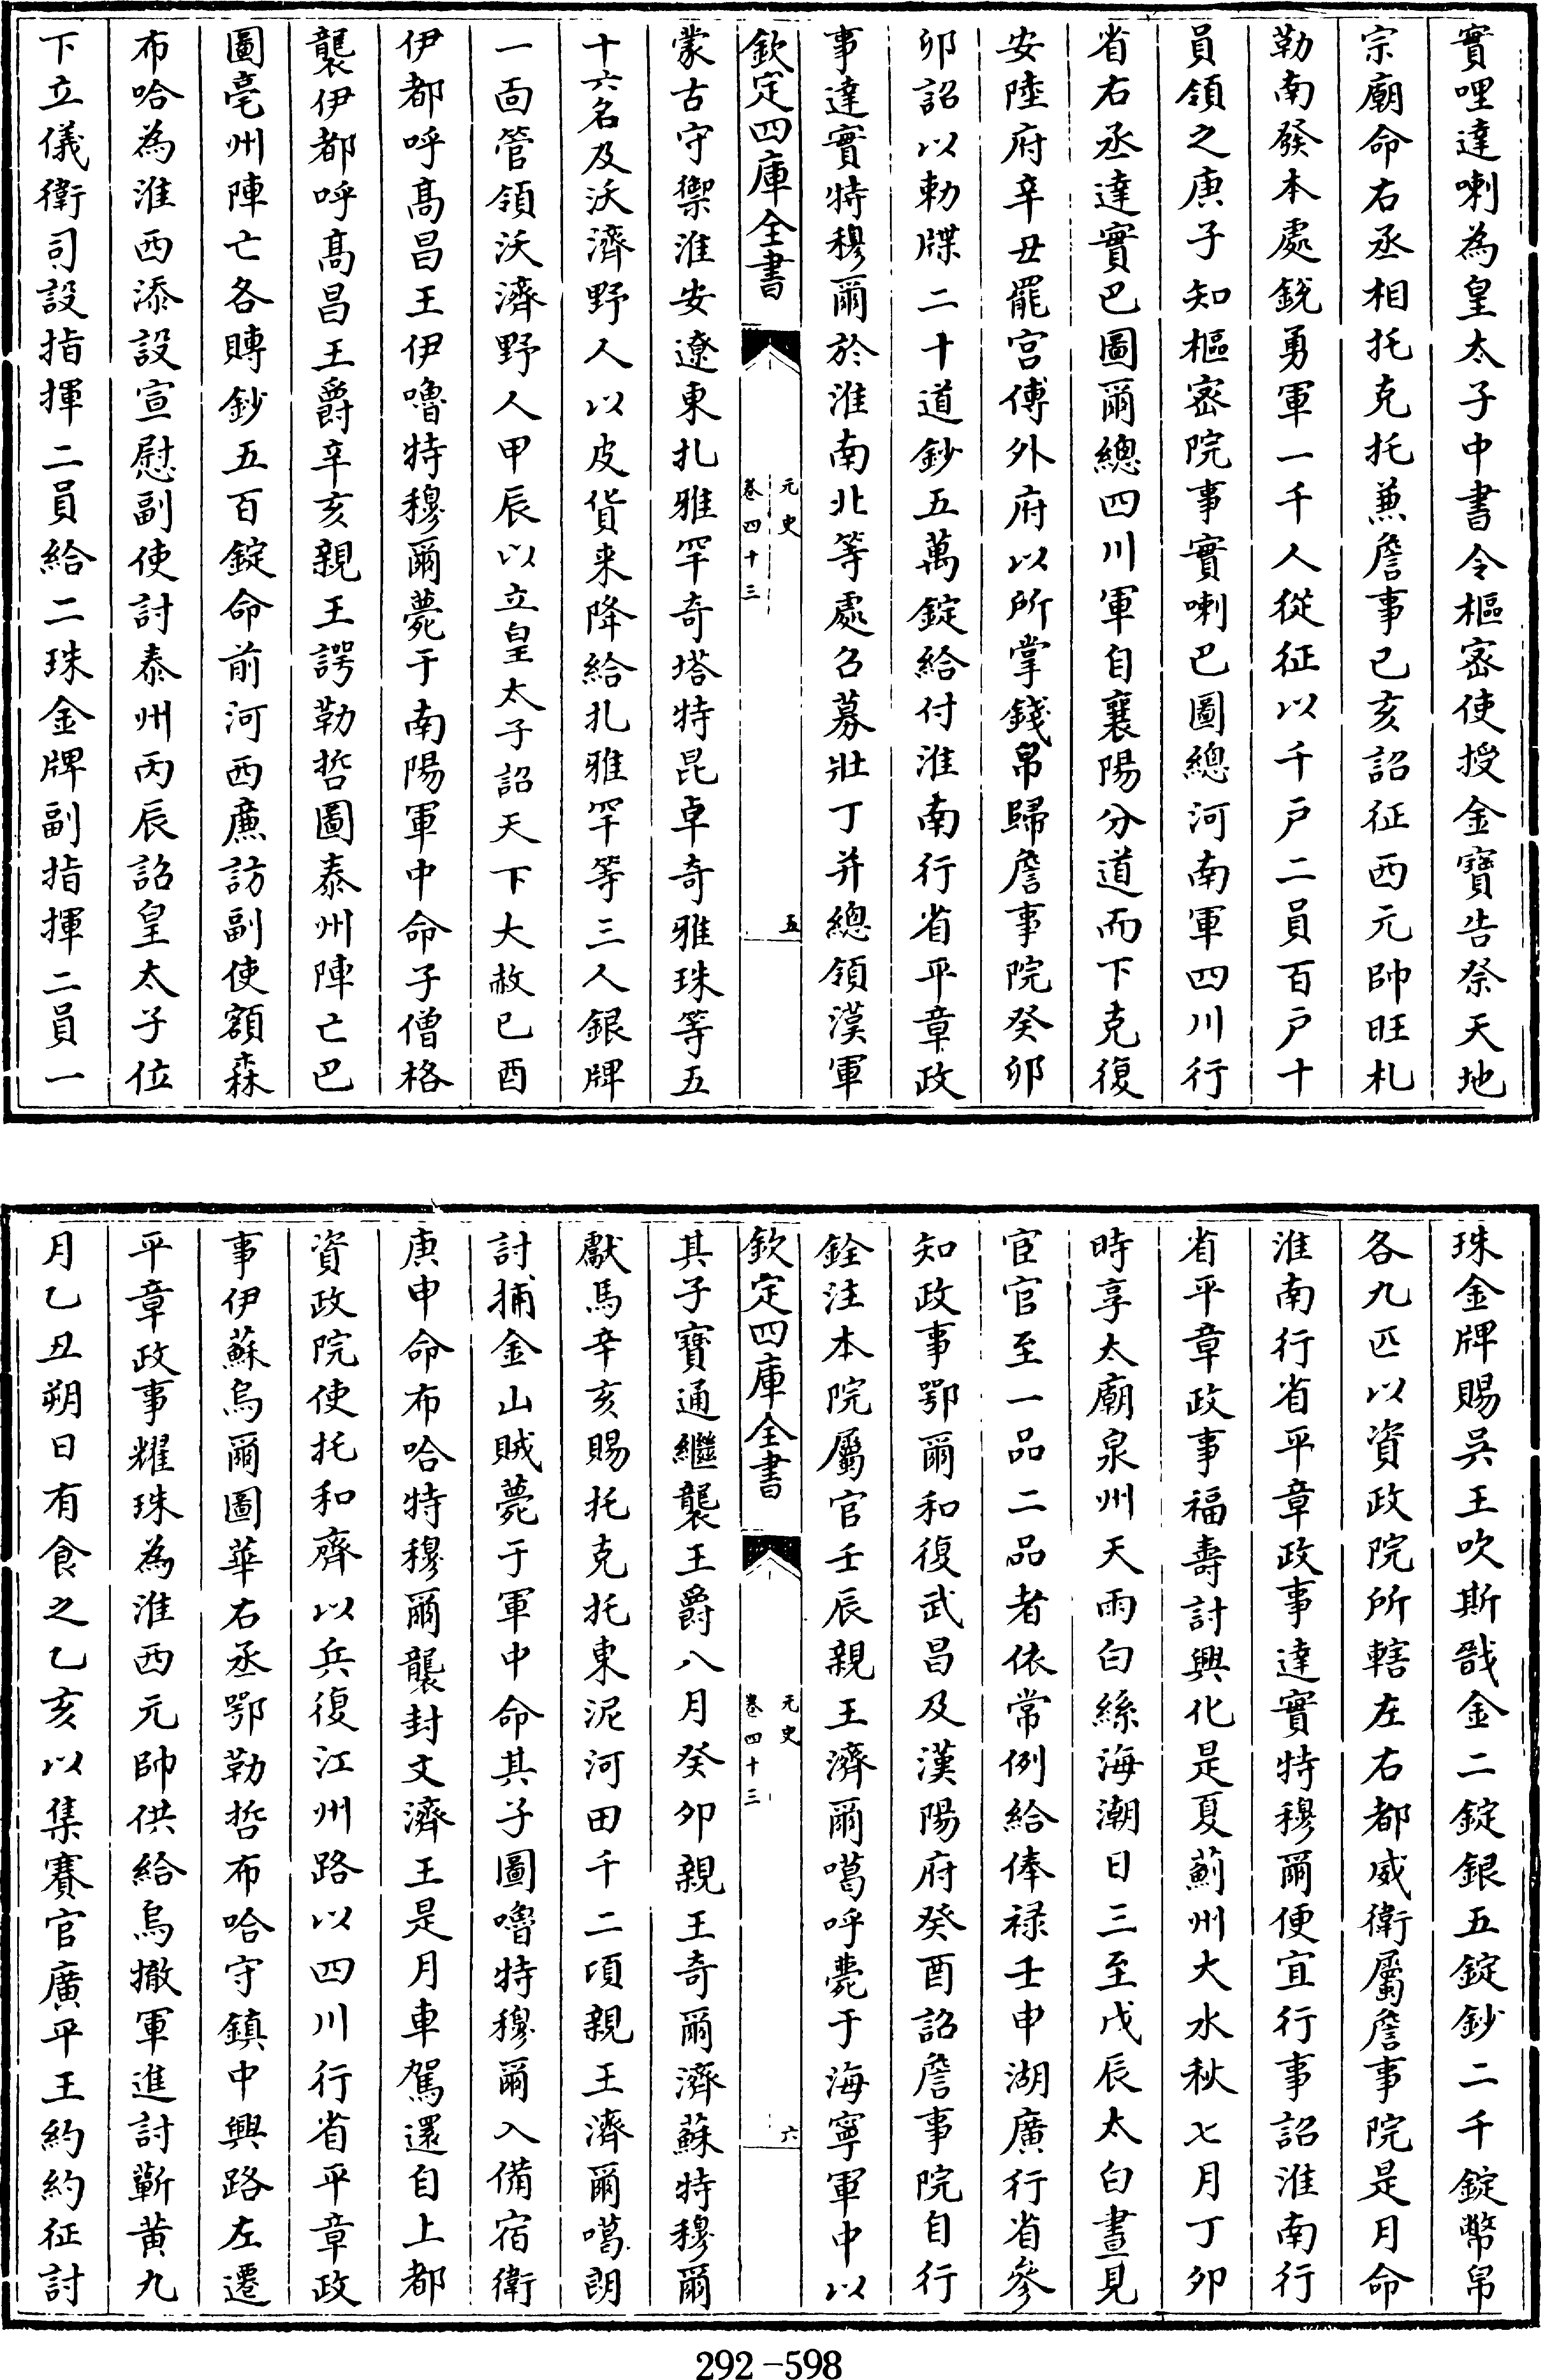 實哩達喇為皇太子中書令樞宻使授金寶告祭天地
宗廟命右丞相托克托兼詹事己亥詔征西元帥旺札
勒南發本處銳勇軍一千人從征以千戸二員百戸十
員領之庚子知樞宻院事實喇巴圖總河南軍四川行
省右丞達實巴圖爾總四川軍自襄陽分道而下克復
安陸府辛丑罷宫傅外府以所掌錢帛歸詹事院癸卯
卯詔以勅牒二十道鈔五萬錠給付淮南行省平章政
事達實特穆爾於淮南北等處召募壯丁并總領漢軍
欽定四庫全書
元史
卷四十三
五
蒙古守禦淮安遼東扎雅罕奇塔特昆卓奇雅珠等五
十六名及沃濟野人以皮貨来降給扎雅罕等三人銀牌
一面管領沃濟野人甲辰以立皇太子詔天下大赦已酉
伊都呼髙昌王伊嚕特穆爾薨于南陽軍中命子僧格
襲伊都呼髙昌王爵辛亥親王諤勒哲圖泰州陣亡巴
圖亳州陣亡各賻鈔五百錠命前河西廉訪副使額森
布哈為淮西添設宣慰副使討泰州丙辰詔皇太子位
下立儀衛司設指揮二員給二珠金牌副指揮二員一
珠金牌賜吳王吹斯戩金二錠銀五錠鈔二千錠幣帛
各九匹以資政院所轄左右都威衛屬詹事院是月命
淮南行省平章政事達實特穆爾便宜行事詔淮南行
省平章政事福壽討興化是夏薊州大水秋七月丁卯
時享太廟泉州天雨白絲海潮日三至戊辰太白晝見
宦官至一品二品者依常例給俸禄壬申湖廣行省參
知政事鄂爾和復武昌及漢陽府癸酉詔詹事院自行
銓注本院屬官壬辰親王濟爾噶呼薨于海寧軍中以
欽定四庫全書
元史
卷四十三
六
其子寶通繼襲王爵八月癸卯親王奇爾濟蘇特穆爾
獻馬辛亥賜托克托東泥河田千二項親王濟爾噶朗
討捕金山賊薨于軍中命其子圖嚕特穆爾入備宿衛
庚申命布哈特穆爾襲封文濟王是月車駕還自上都
資政院使托和齊以兵復江州路以四川行省平章政
事伊蘇烏爾圖華右丞鄂勒哲布哈守鎮中興路左遷
平章政事耀珠為淮西元帥供給烏撤軍進討蘄黄九
月乙丑朔日有食之乙亥以集賽官廣平王約約征討
292-598